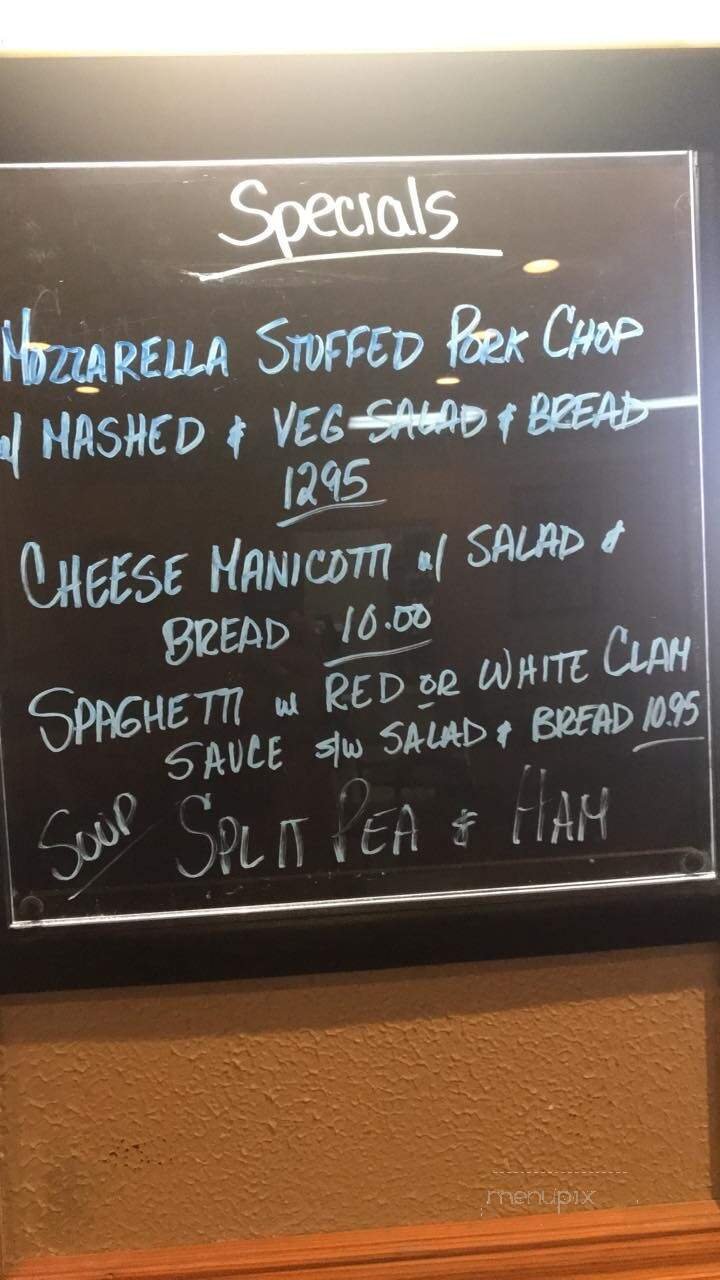 Specials
MOZZARELLA STUFFED PORK CHOP
w/ MASHED & VEG SALAD & BREAD
1295
CHEESE MANICOTTI w/ SALAD &
BREAD 10.00
SPAGHETTI w RED OR WHITE CLAM
SAUCE s/w SALAD & BREAD 10.95
SOUP SPLIT PEA & HAM
menupix